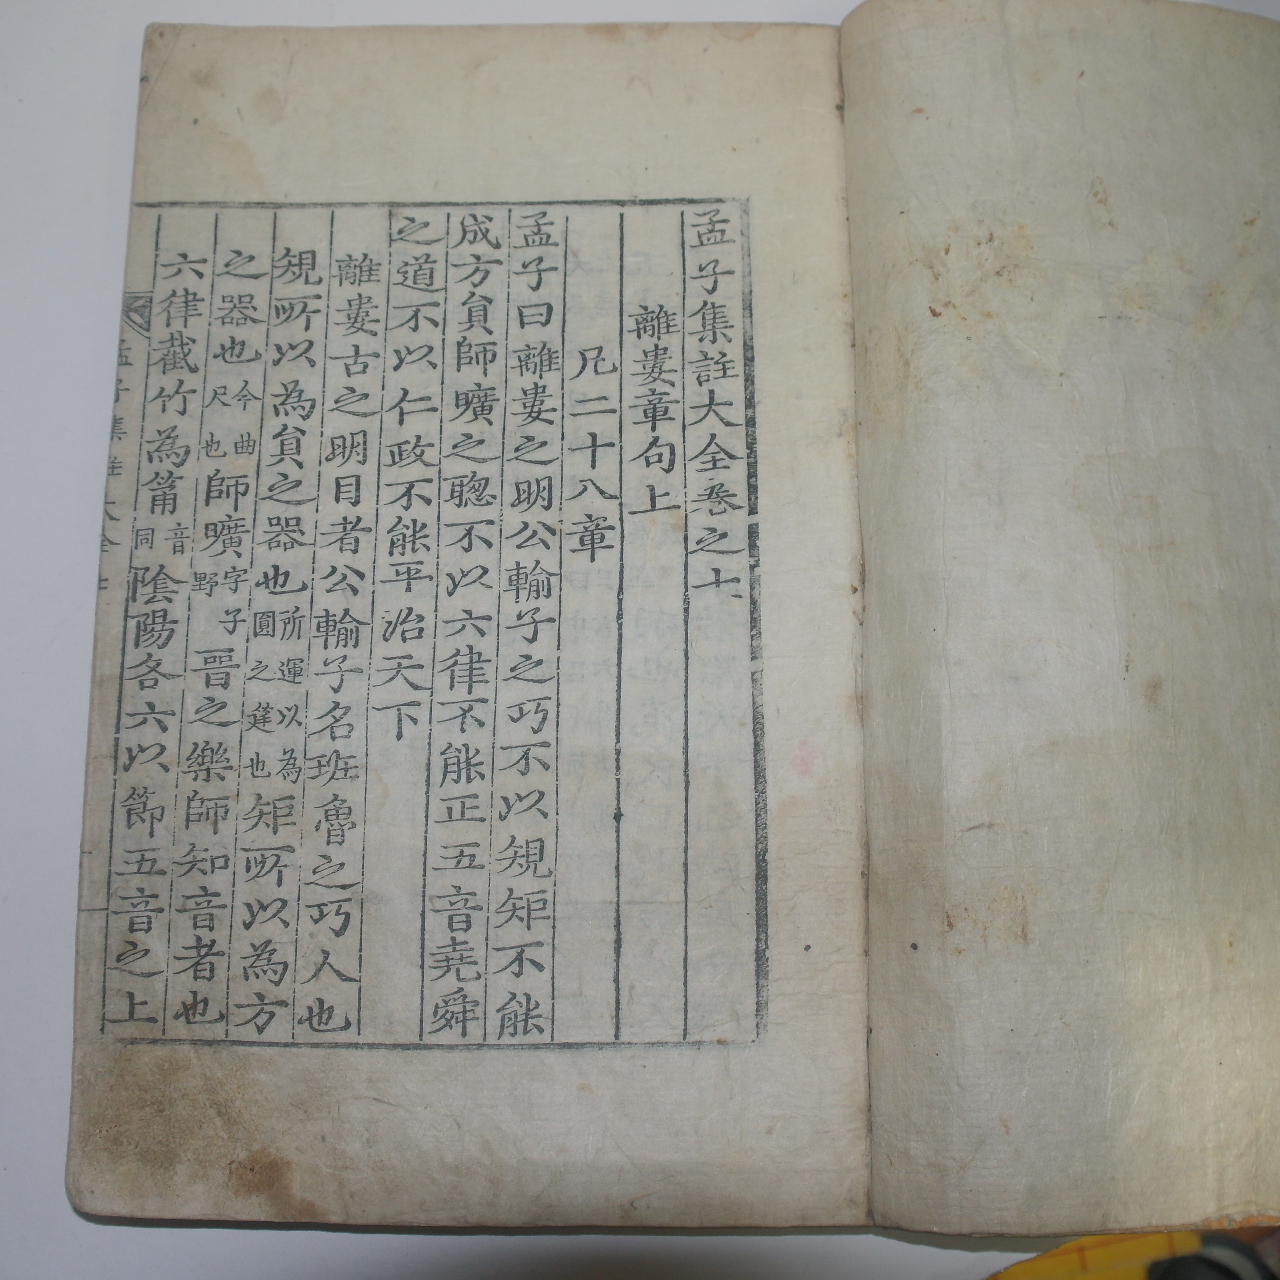 孟子集註大全卷之七
離婁章句上
凡二十八章
孟子曰離婁之明公輸子之巧不以規矩不能
成方員師曠之聰不以六律不能正五音堯舜
之道不以仁政不能平治天下
離婁古之明目者公輸子名班魯之巧人也
規所以為員之器也所運以為圓之筳也矩所以為方
之器也今曲尺也師曠字子野晉之樂師知音者也
六律截竹為筩音同陰陽各六以節五音之上
孟子集註大全七